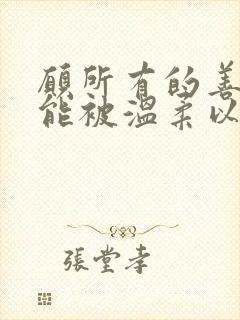 願所有的善
能被溫柔以
張堂幸